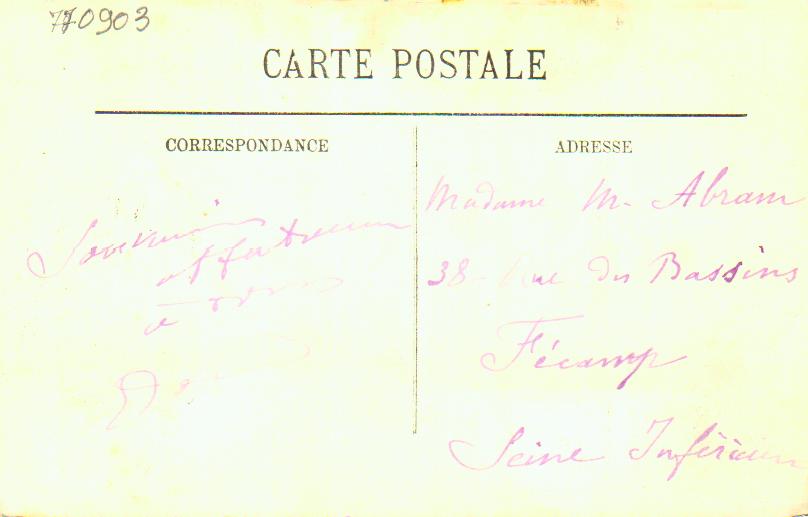 770903
CARTE POSTALE
CORRESPONDANCE
Souvenir
affectueux
à tous
ADRESSE
Madame M. Abram
38 - Rue des Bassins
Fécamp
Seine Inférieure